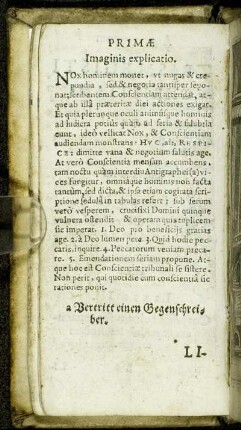 PRIMÆ
Imaginis explicatio.
NOx hominem monet, vt nugas & cre-
pundia, sed & negotia tantisper sepo-
nat; seribentem Conscientiam attendat, at-
que ab illâ præteritæ diei actiones exigat.
Et quia plerunque oculi animique hominis
ad ludicra potiùs quàm ad seria & salubria
eunt, ideò vellicat Nox, & Conscientiam
audiendam monstrans: HVC, ait, RESPI-
CE: dimitte vana & negotium salutis age.
At verò Conscientia mensam accumbens,
tam noctu quàm interdiu Antigraphei(a) vi-
ces fungitur, omniáque hominis non facta
tantùm, sed dicta, & ipsa etiam cogitata scri-
ptione sedulâ in tabulas refert; sub serum
verò vesperem, crucifixi Domini quinque
vulnera ostendit & operam quintuplicem
sic imperat. 1. Deo pro beneficijs gratias
age. 2. à Deo lumen pete. 3. Quid hodie pec-
caris, inquire. 4. Peccatorum veniam preca-
re. 5. Emendationem seriam propone. At-
que hoc est Conscientiæ tribunali se sistere.
Non perit, qui quotidie cum conscientiâ sic
rationes ponit.
a Vertritt einen Gegenschrei-
ber.
LI-